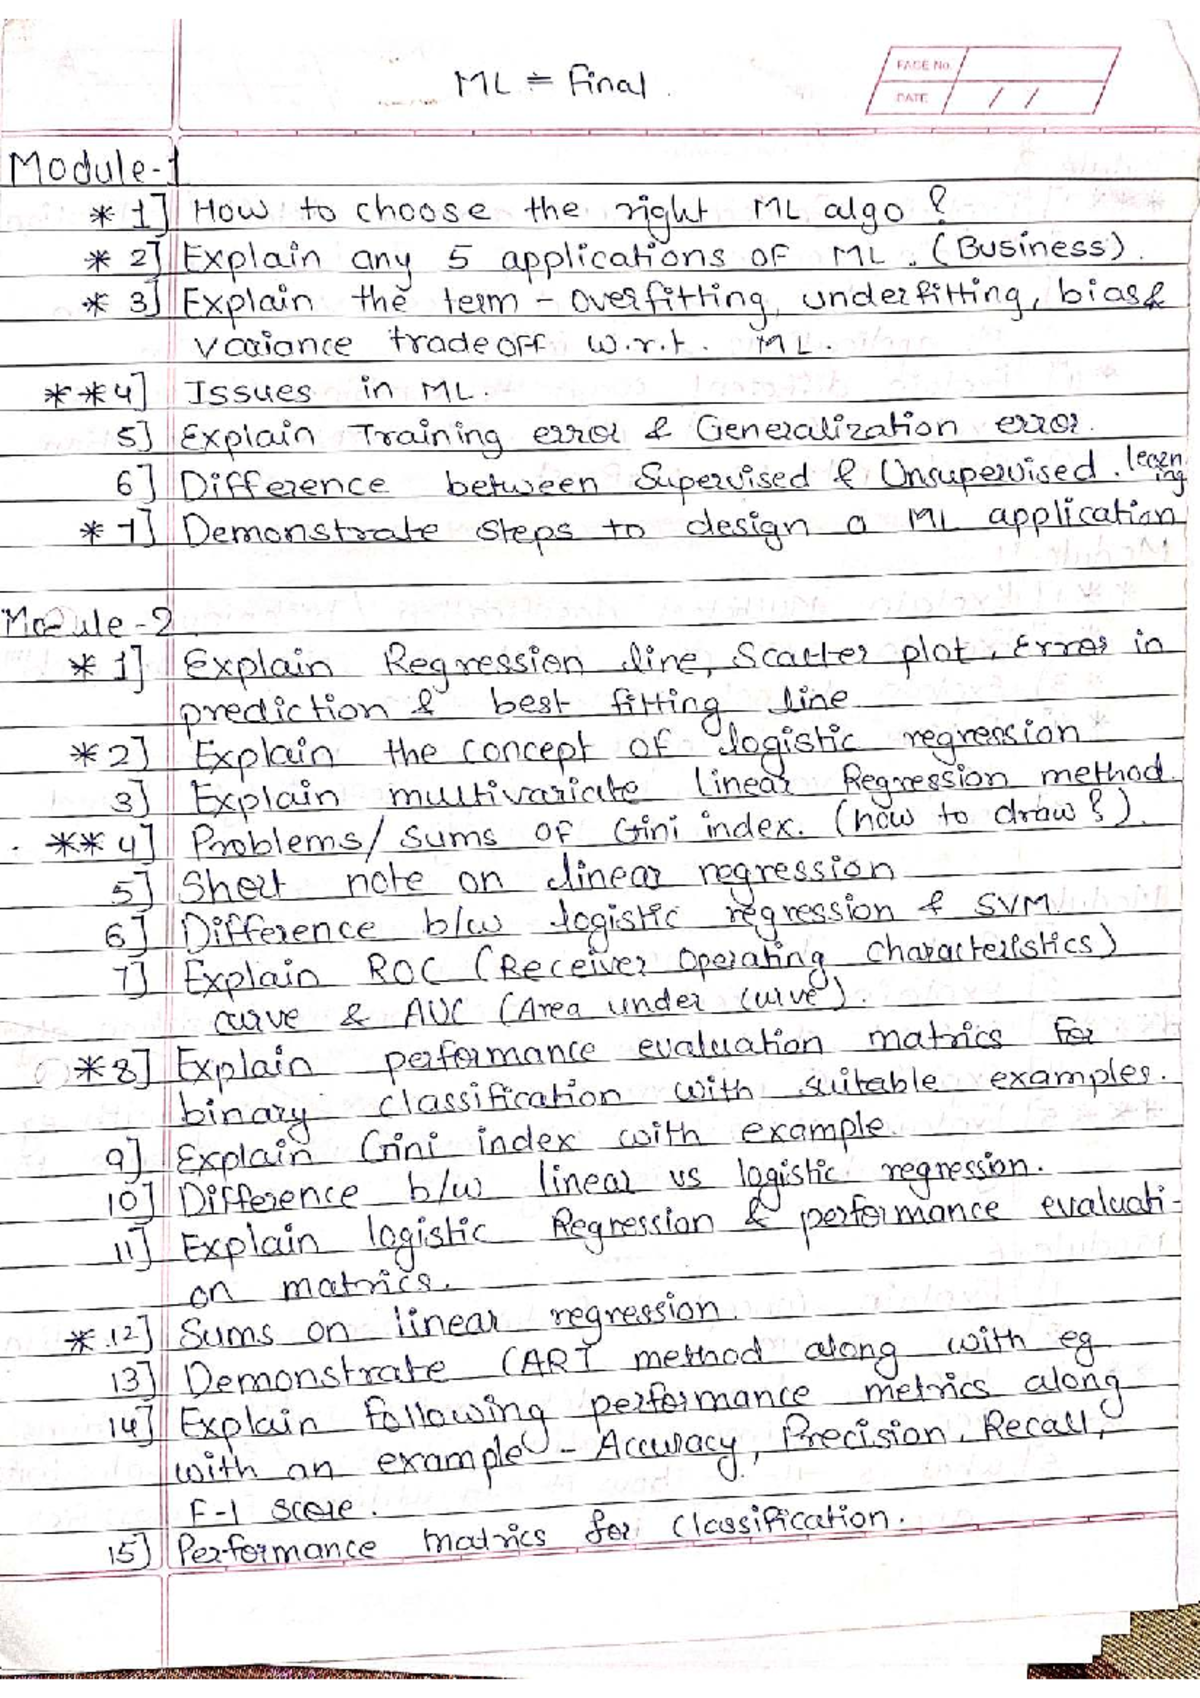 ML = final.
PAGE No.
DATE / /
Module-1
* 1] How to choose the right ML algo ?
* 2] Explain any 5 applications of ML. (Business).
* 3] Explain the term - overfitting, underfitting, bias &
variance tradeoff w.r.t. ML.
**4] Issues in ML.
5] Explain Training error & Generalization error.
6] Difference between Supervised & Unsupervised. learn
ing
* 7] Demonstrate steps to design a ML application
Module-2
* 1] Explain Regression line, Scatter plot, Error in
prediction & best fitting line
*2] Explain the concept of logistic regression
3] Explain multivariate linear Regression method.
**4] Problems/sums of Gini index. (how to draw?).
5] Short note on linear regression
6] Difference b/w logistic regression & SVM
7] Explain ROC (Receiver Operating characteristics)
curve & AUC (Area under curve).
*8] Explain performance evaluation matrics for
binary classification with suitable examples.
9] Explain Gini index with example.
10] Difference b/w linear vs logistic regression.
11] Explain logistic Regression & performance evaluati-
on matrics.
*12] Sums on linear regression.
13] Demonstrate CART method along with eg
14] Explain following performance metrics along
with an example - Accuracy, Precision, Recall,
F-1 score.
15] Performance matrics for classification.